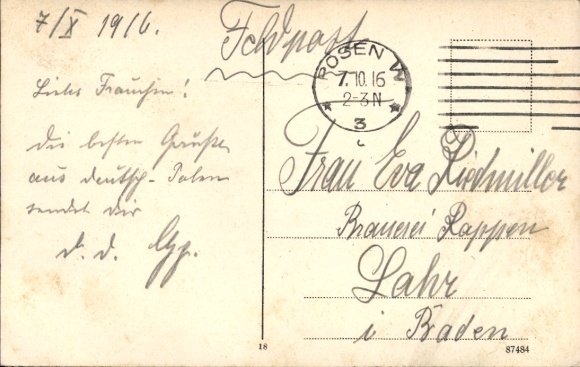 7/X 1916.
Feldpost
POSEN W
7.10.16
2-3N
* 3 *
c
Liebes Frauchen!
Die besten Grüße
aus deutsch-Polen
sendet Dir
d. d.
Frau Eva
Brauerei Rappen
Lahr
i Baden
18
87484